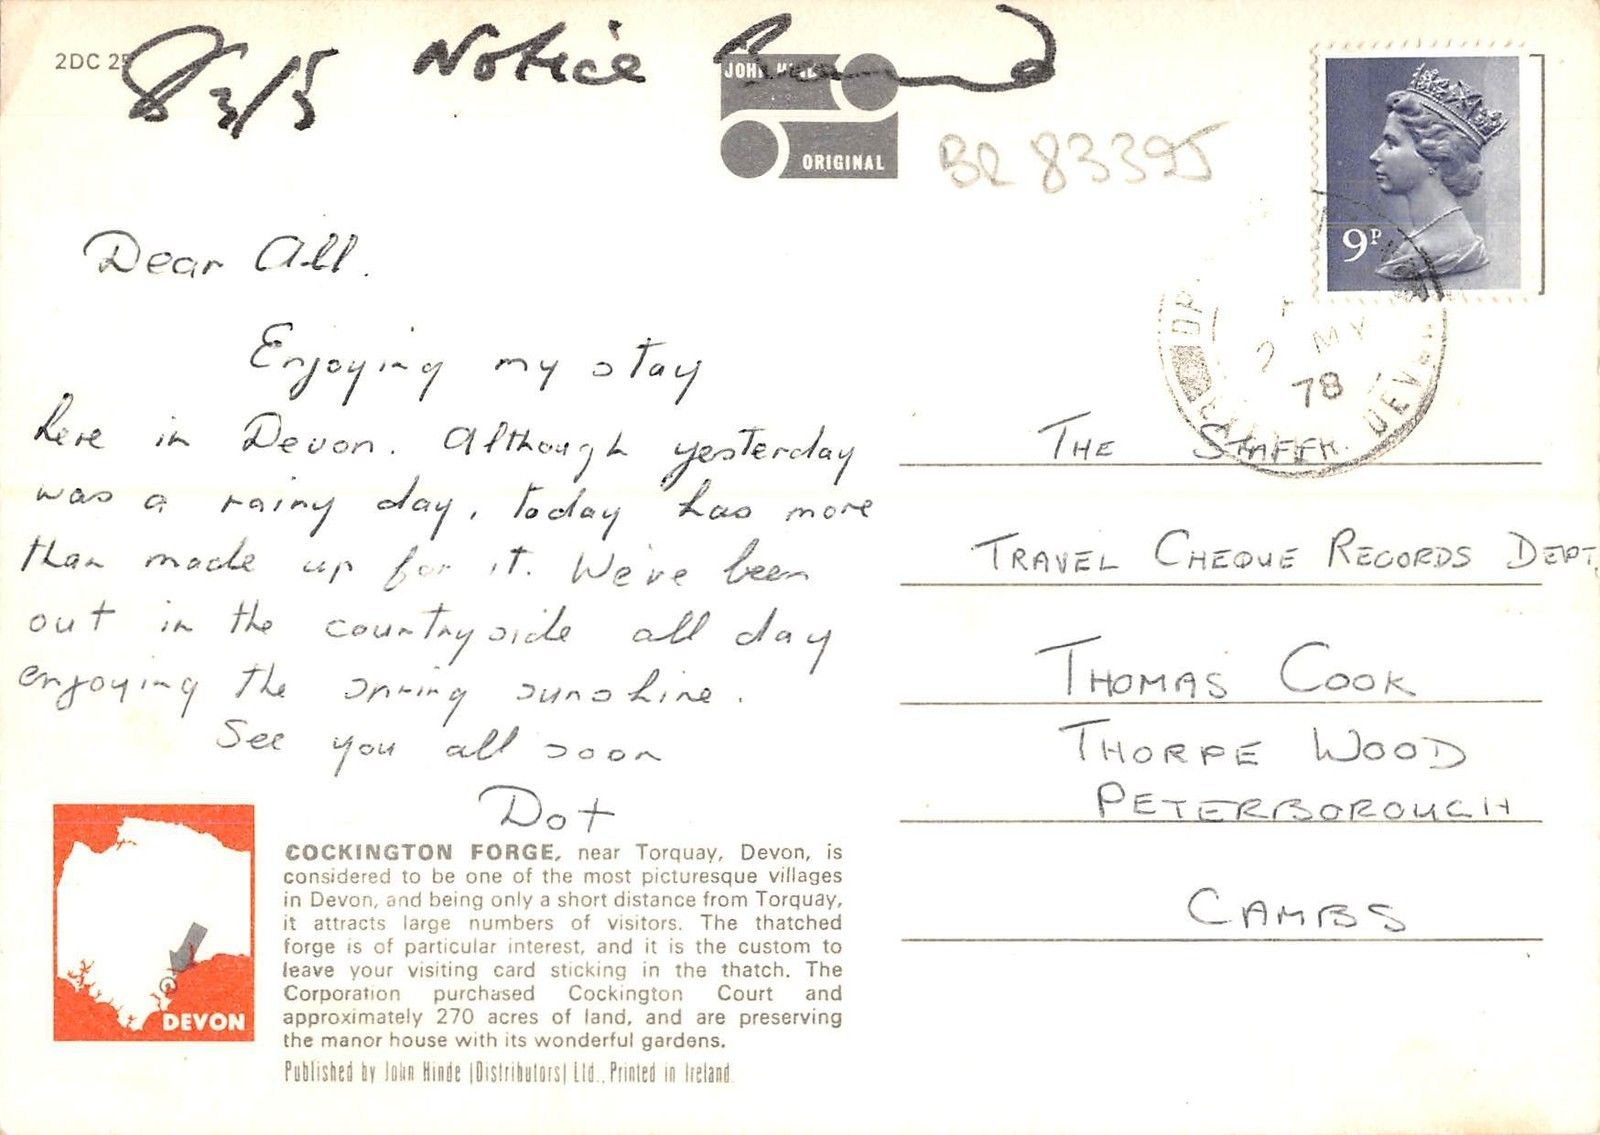 2DC 2
3/5 Notice Board
JOHN HINDE
ORIGINAL
BR 83395
9P
2 MY
78
DEVON
Dear All.
Enjoying my stay
here in Devon. Although yesterday
was a rainy day, today has more
than made up for it. We've been
out in the countryside all day
enjoying the spring sunshine.
See you all soon
Dot
THE STAFF.
TRAVEL CHEQUE RECORDS DEPT.
THOMAS COOK
THORPE WOOD
PETERBOROUGH
CAMBS
DEVON
COCKINGTON FORGE, near Torquay, Devon, is
considered to be one of the most picturesque villages
in Devon, and being only a short distance from Torquay,
it attracts large numbers of visitors. The thatched
forge is of particular interest, and it is the custom to
leave your visiting card sticking in the thatch. The
Corporation purchased Cockington Court and
approximately 270 acres of land, and are preserving
the manor house with its wonderful gardens.
Published by John Hinde (Distributors) Ltd., Printed in Ireland.